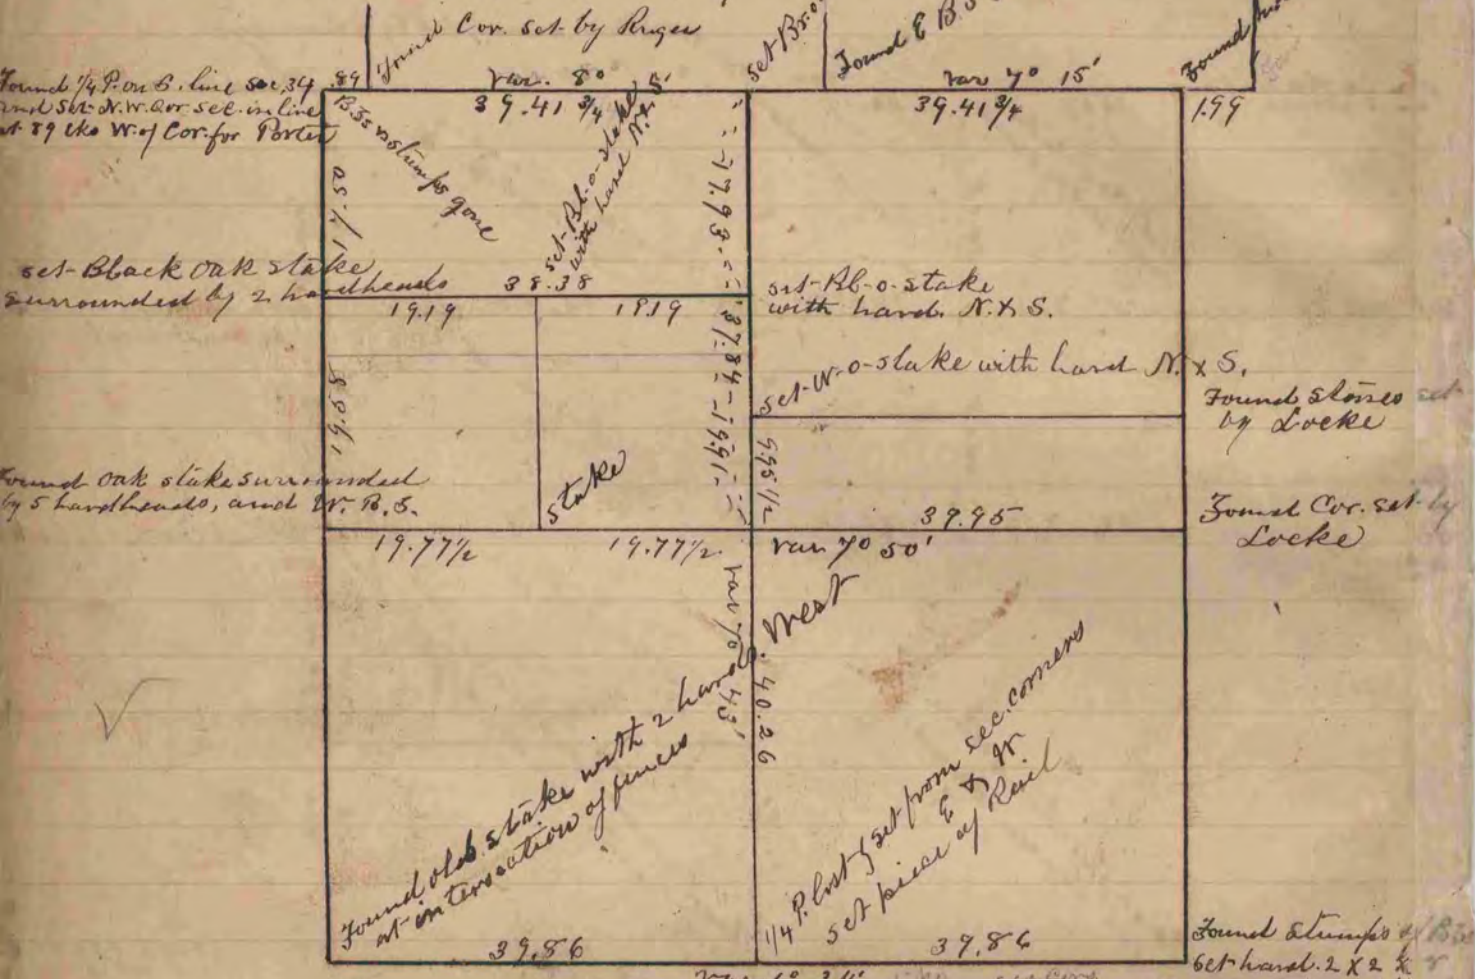 Found Cor. set by Ruger
set Br. o
Found E B.S
Found
Found 1/4 P. on S. line Sec, 34
and Set N.W. Cor. sec. in line
at 89 lks W. of Cor. for Porter
.89
Var. 8°
39.41 3/4
var 7° 15'
39.41 3/4
1.99
B.Ss stumps gone
set-Bl-o-stake
with hard N. & S.
17.50
17.93
set-Black Oak Stake
surrounded by 2 hardheads
38.38
19.19
19.19
set-Bl-o-stake
with hard. N. & S.
37.84
19.91
set-W-o-stake with hard N. & S.
Found Stones set
by Locke
19.58
9.95 1/2
Found Oak stake surrounded
by 5 hardheads, and W. B.S.
stake
39.95
Found Cor. set by
Locke
19.77 1/2
19.77 1/2
var 7° 50'
var 7° 43'
40.26
Found old stake with 2 hards. West
at intersection of fences
1/4 P. lost & set from sec. corners
E & W
set piece of Rail
39.86
39.86
Found Stumps of B
Set hard. 2 X 2 X